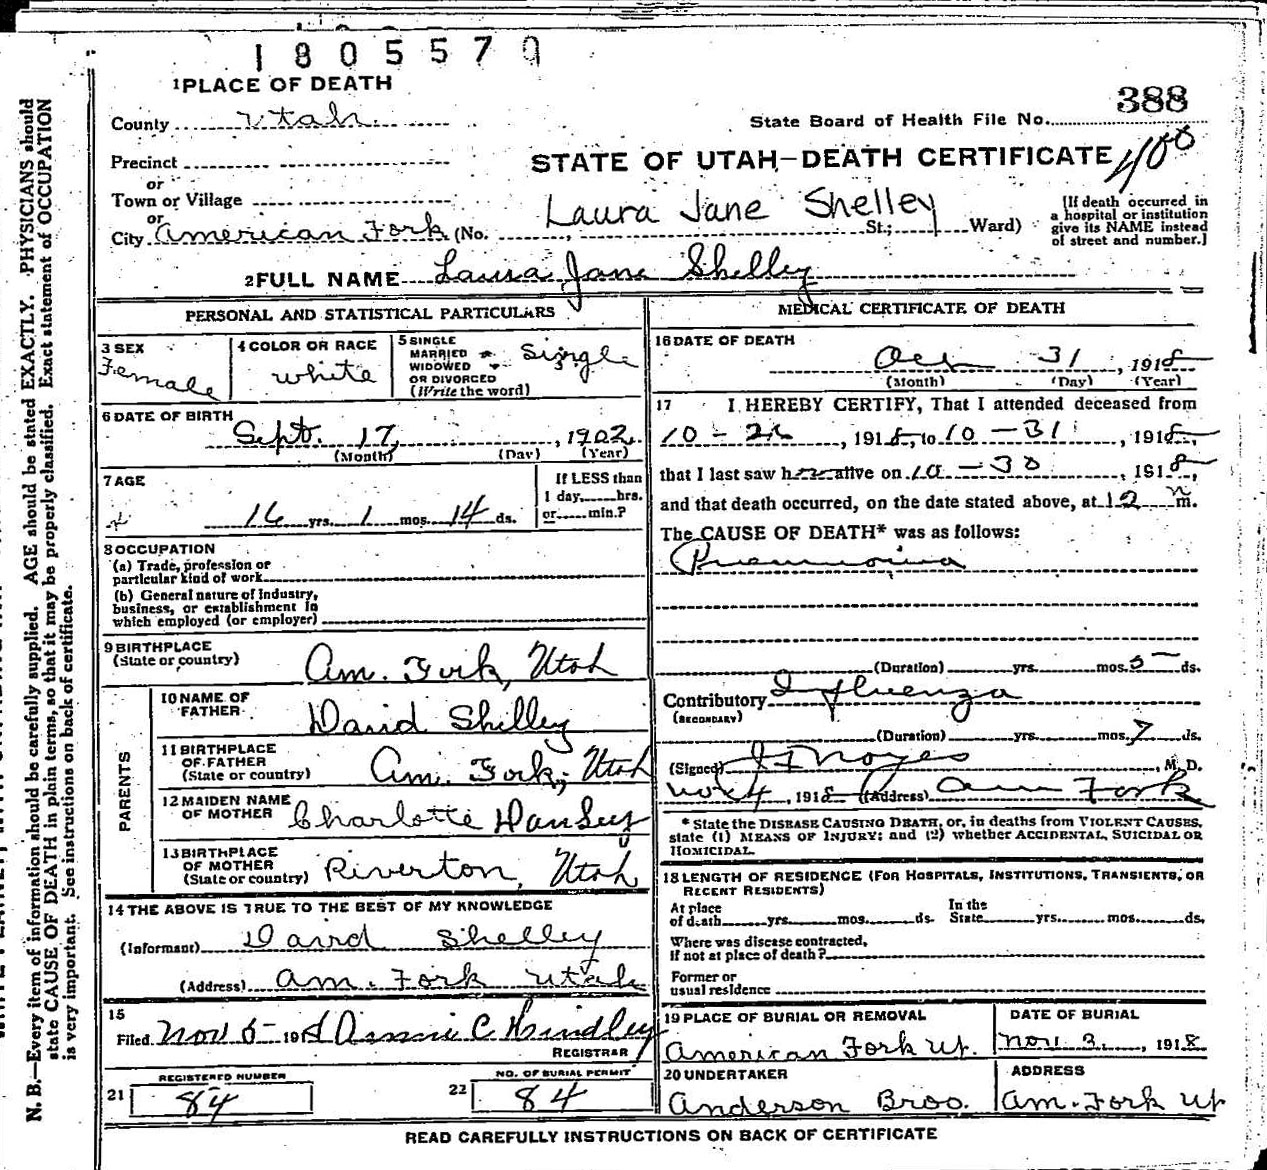 1805570
1 PLACE OF DEATH
388
County Utah
State Board of Health File No.
Precinct
STATE OF UTAH—DEATH CERTIFICATE
400
or
Town or Village
Laura Jane Shelley
or
City American Fork (No. , St.; Ward)
[If death occurred in
a hospital or institution
give its NAME instead
of street and number.]
2 FULL NAME Laura Jane Shelley
PERSONAL AND STATISTICAL PARTICULARS
3 SEX
Female
4 COLOR OR RACE
white
5 SINGLE
MARRIED
WIDOWED
OR DIVORCED
(Write the word)
Single
6 DATE OF BIRTH
Sept. 17, , 1902
(Month) (Day) (Year)
7 AGE
16 yrs. 1 mos. 14 ds.
If LESS than
1 day, hrs.
or min.?
8 OCCUPATION
(a) Trade, profession or
particular kind of work
(b) General nature of Industry,
business, or establishment in
which employed (or employer)
9 BIRTHPLACE
(State or country)
Am. Fork, Utah
PARENTS
10 NAME OF
FATHER
David Shelley
11 BIRTHPLACE
OF FATHER
(State or country)
Am. Fork, Utah
12 MAIDEN NAME
OF MOTHER
Charlotte
13 BIRTHPLACE
OF MOTHER
(State or country)
Riverton, Utah
14 THE ABOVE IS TRUE TO THE BEST OF MY KNOWLEDGE
(Informant) David Shelley
(Address) Am. Fork Utah
15
Filed Nov 5 1918 Annie C Hindley
REGISTRAR
REGISTERED NUMBER
21 84
NO. OF BURIAL PERMIT
22 84
MEDICAL CERTIFICATE OF DEATH
16 DATE OF DEATH
Oct 31 , 1918
(Month) (Day) (Year)
17 I HEREBY CERTIFY, That I attended deceased from
10-26, 1918, to 10-31, 1918,
that I last saw her alive on 10-30, 1918,
and that death occurred, on the date stated above, at 12 m.
The CAUSE OF DEATH* was as follows:
Pneumonia
(Duration) yrs. mos. 5 ds.
Contributory Influenza
(SECONDARY)
(Duration) yrs. mos. 7 ds.
(Signed) Noyes, M. D.
Nov 4, 1918 (Address) Am Fork
* State the DISEASE CAUSING DEATH, or, in deaths from VIOLENT CAUSES,
state (1) MEANS OF INJURY; and (2) whether ACCIDENTAL, SUICIDAL OR
HOMICIDAL.
18 LENGTH OF RESIDENCE (FOR HOSPITALS, INSTITUTIONS, TRANSIENTS, OR
RECENT RESIDENTS)
At place
of death yrs. mos. ds.
In the
State yrs. mos. ds.
Where was disease contracted,
If not at place of death?
Former or
usual residence
19 PLACE OF BURIAL OR REMOVAL
American Fork Ut.
DATE OF BURIAL
Nov. 3, 1918
20 UNDERTAKER
Anderson Bros.
ADDRESS
Am. Fork Ut
READ CAREFULLY INSTRUCTIONS ON BACK OF CERTIFICATE
N. B.—Every item of information should be carefully supplied. AGE should be stated EXACTLY. PHYSICIANS should
state CAUSE OF DEATH in plain terms, so that it may be properly classified. Exact statement of OCCUPATION
is very important. See instructions on back of certificate.